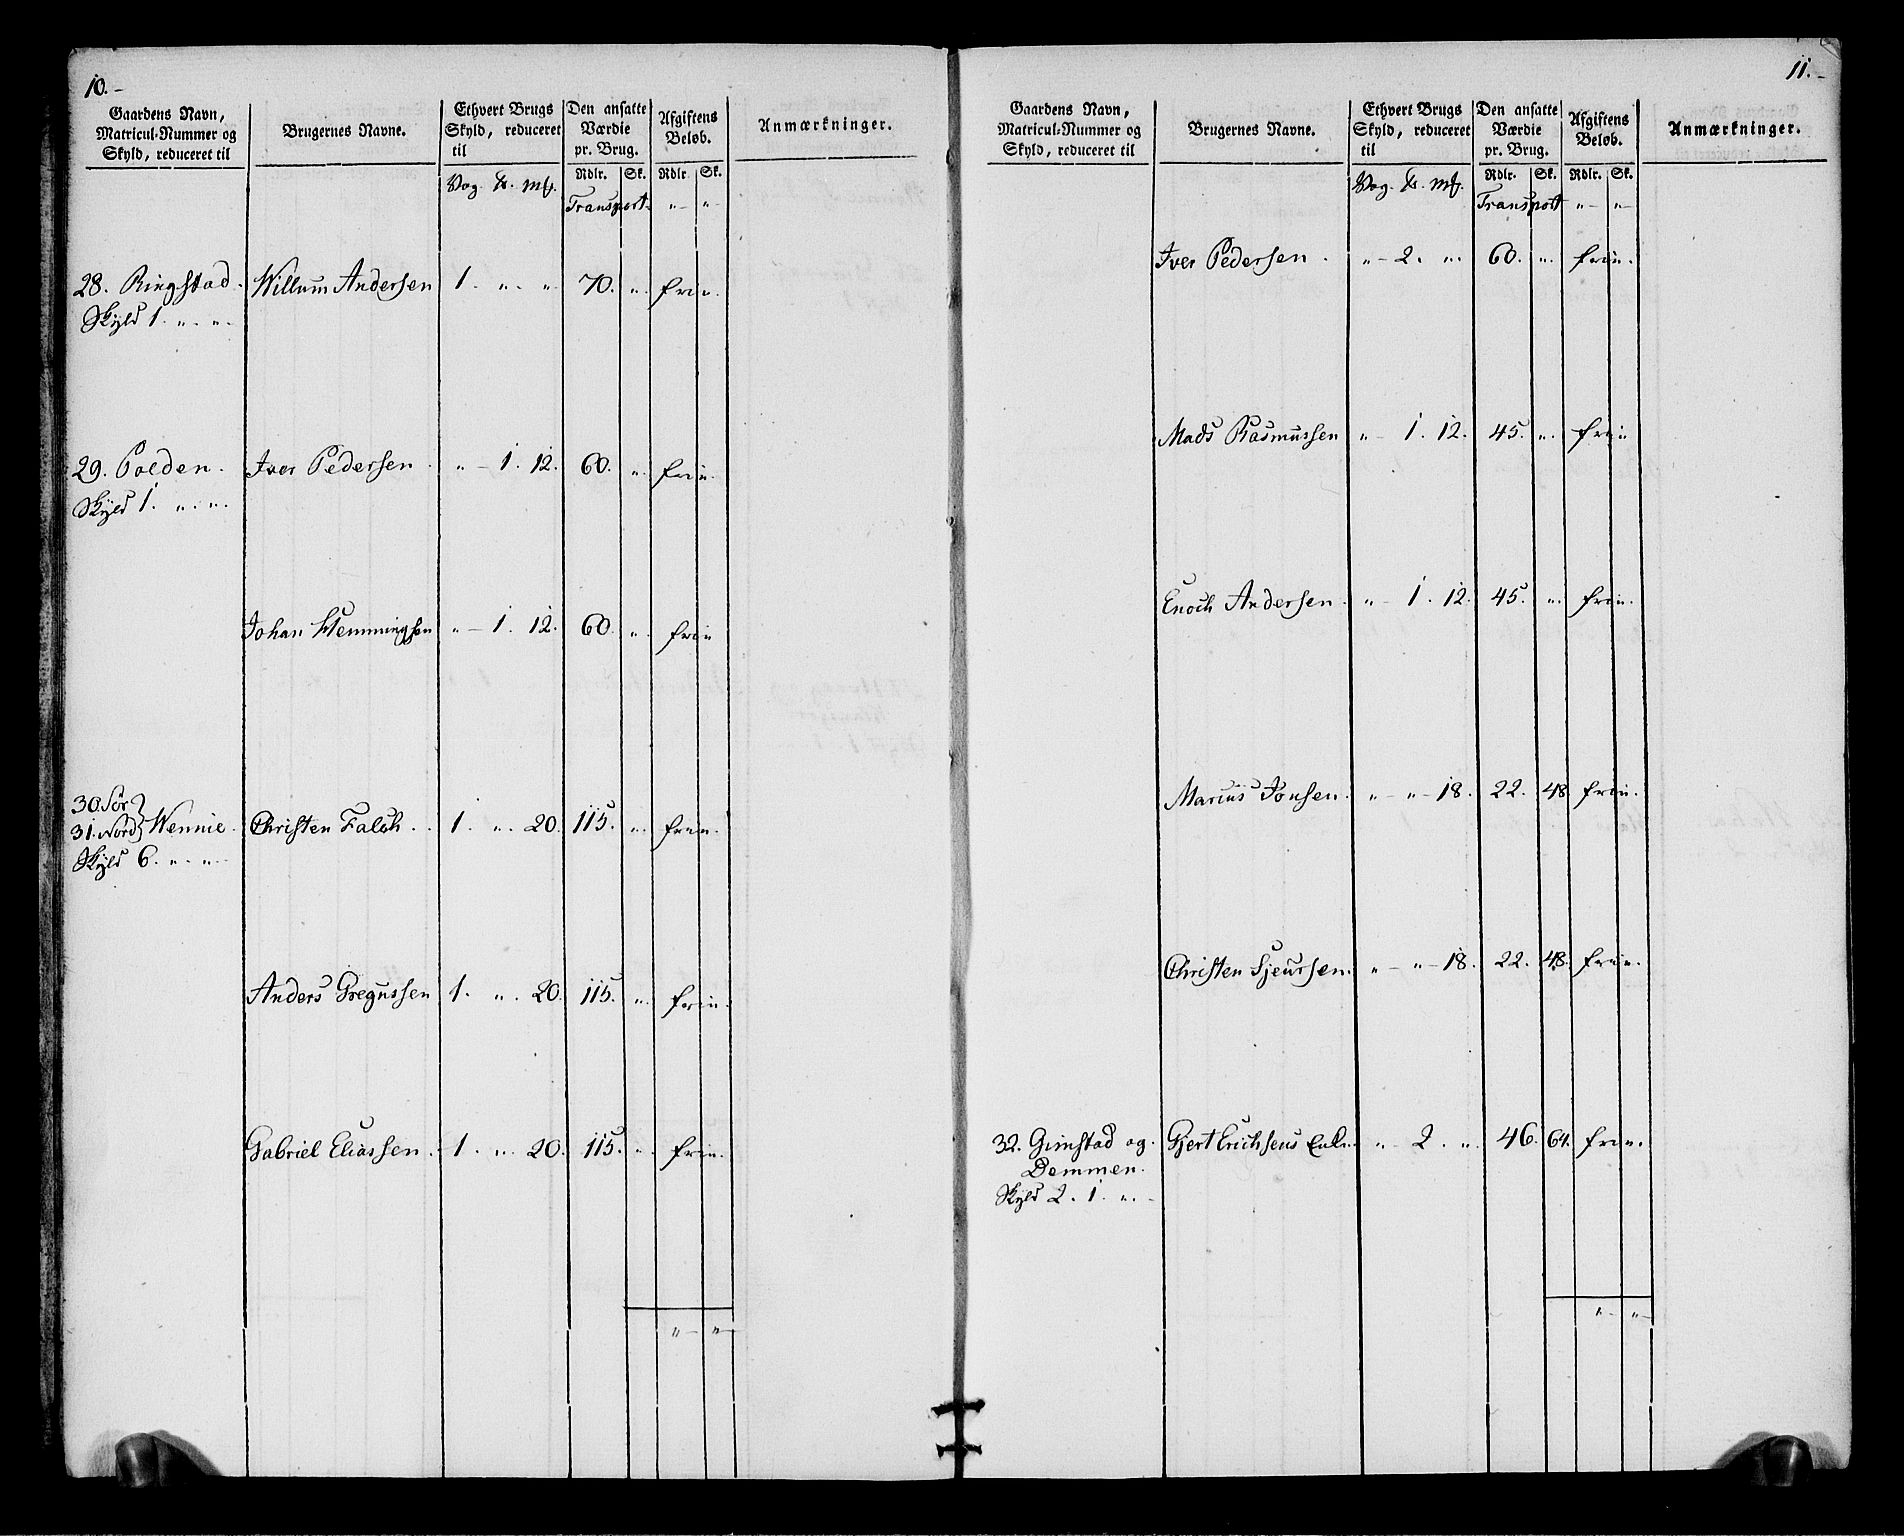 10.-
Gaardens Navn, Matricul-Nummer og Skyld, reduceret til
Brugernes Navne.
Ethvert Brugs Skyld, reduceret til
Den ansatte Værdie pr. Brug.
Afgiftens Beløb.
Anmærkninger.
Vog. ℔. Mk. Rdlr. Sk. Rdlr. Sk.
Transport. „ - „ -
28. Ringstad. Willum Andersen 1. „. „. 70. „. frie.
Skyld 1. „. „.
29. Polden. Iver Pedersen. „ - 1. 12. 60. „. frie.
Skyld 1. „. „.
Johan Hemmingsen „ - 1. 12. 60. „. frie
30. Sør
31. Nord } Wennie. Christen Falch. 1. „. 20. 115. „. frie.
Skyld 6. „. „.
Anders Gregussen 1. „. 20. 115. „. frie.
Gabriel Eliassen. 1. „. 20. 115. „. frie.
„ - „ -
11.-
Gaardens Navn, Matricul-Nummer og Skyld, reduceret til
Brugernes Navne.
Ethvert Brugs Skyld, reduceret til
Den ansatte Værdie pr. Brug.
Afgiftens Beløb.
Anmærkninger.
Vog. ℔. Mk. Rdlr. Sk. Rdlr. Sk.
Transport „ - „ -
Iver Pedersen. „ - 2. „. 60. „. frie.
Mads Rasmussen „ - 1. 12. 45. „. frie
Enoch Andersen. „ - 1. 12. 45. „. frie.
Marius Jonsen. „ - „ - 18. 22. 48 frie.
Christen Sjeursen. „ - „ - 18. 22. 48. frie.
32. Grimstad og Gjert Erichsens Enke. „ - 2. „. 46. 64. frie.
Demmen.
Skyld 2. 1. „. -
„ - „ -